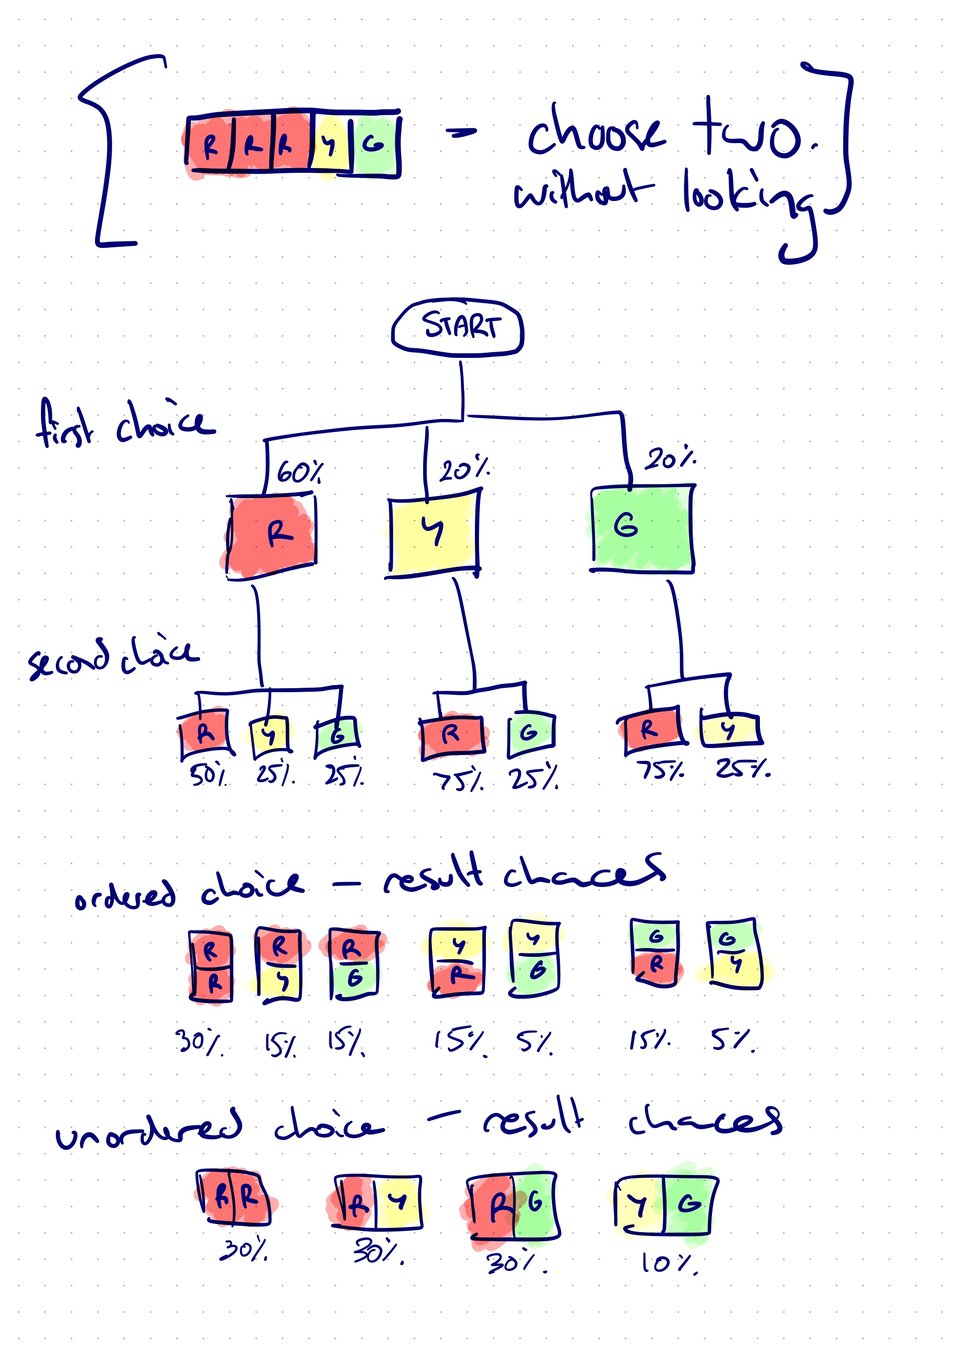 R R R Y G - choose two.
without looking
START
first choice
60% 20% 20%
R Y G
second choice
R Y G R G R Y
50% 25% 25% 75% 25% 75% 25%
ordered choice - result chances
R R R Y Y G G
R Y G R G R Y
30% 15% 15% 15% 5% 15% 5%
unordered choice - result chances
R R R Y R G Y G
30% 30% 30% 10%